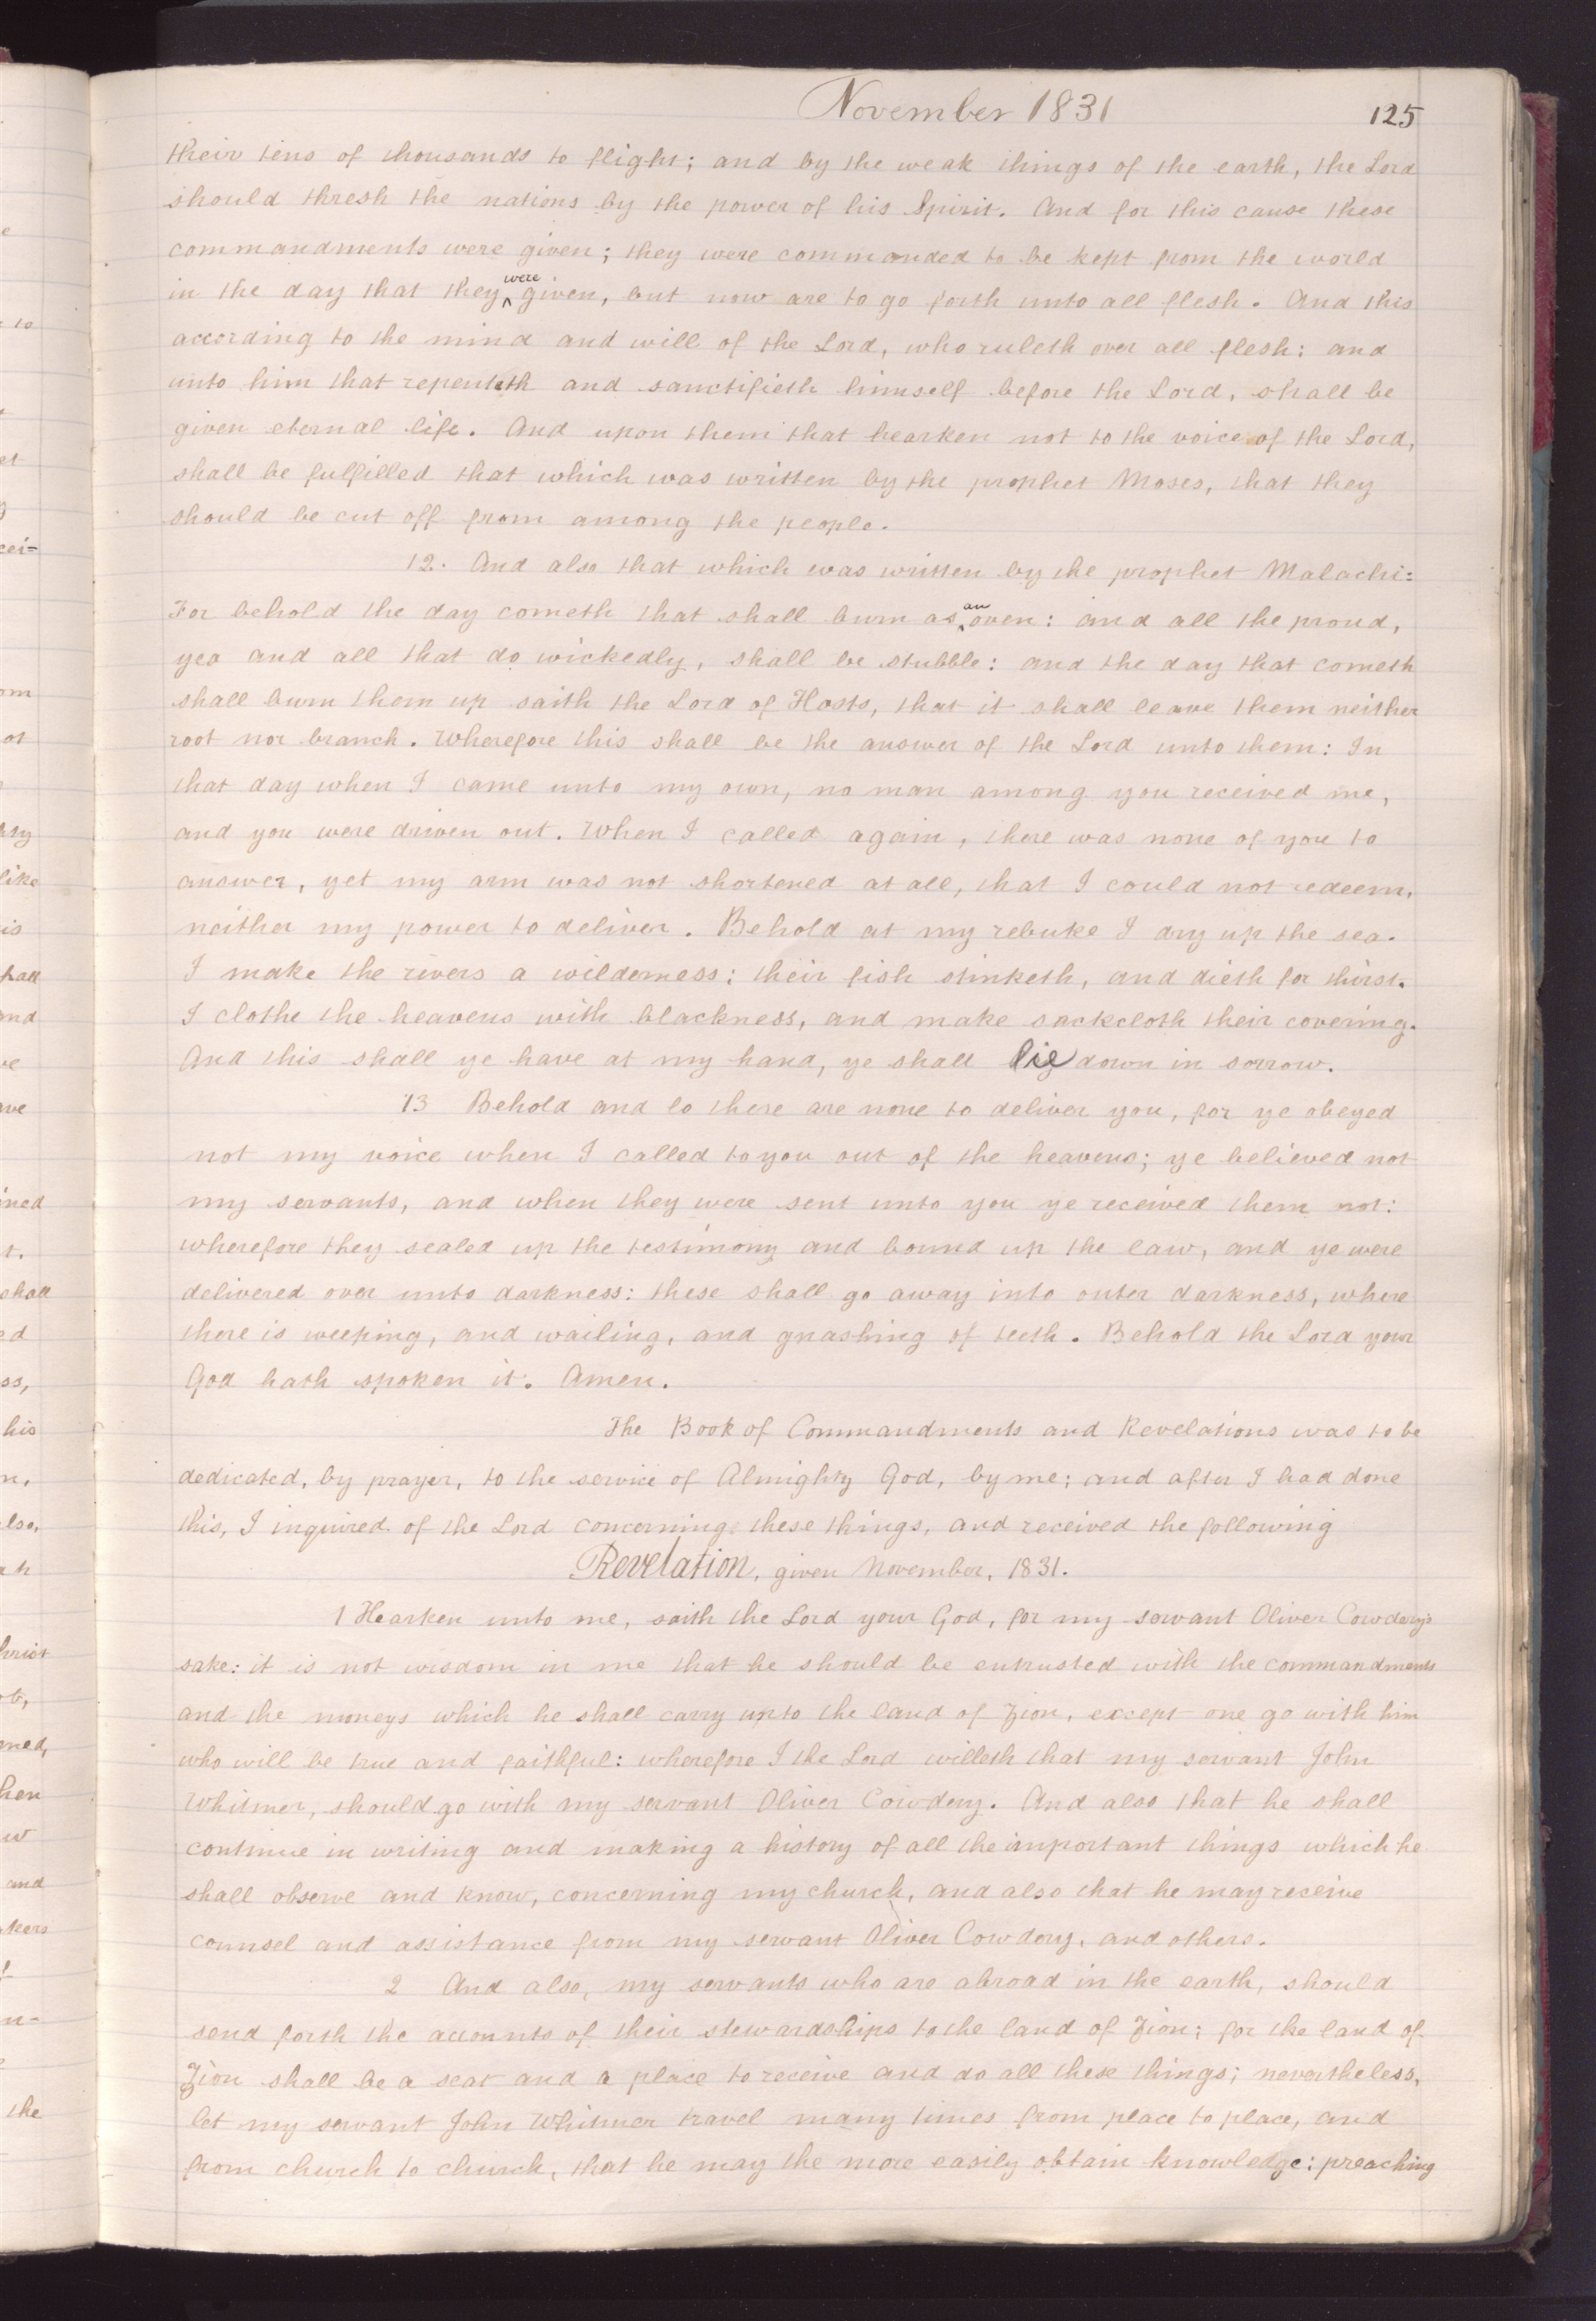 November 1831
125
their tens of thousands to flight; and by the weak things of the earth, the Lord
should thresh the nations by the power of his Spirit. And for this cause these
commandments were given; they were commanded to be kept from the world
in the day that they were given, but now are to go forth unto all flesh. And this
according to the mind and will of the Lord, who ruleth over all flesh: and
unto him that repenteth and sanctifieth himself before the Lord, shall be
given eternal life. And upon them that hearken not to the voice of the Lord,
shall be fulfilled that which was written by the prophet Moses, that they
should be cut off from among the people.
12. And also that which was written by the prophet Malachi:
For behold the day cometh that shall burn as an oven: and all the proud,
yea and all that do wickedly, shall be stubble: and the day that cometh
shall burn them up saith the Lord of Hosts, that it shall leave them neither
root nor branch. Wherefore this shall be the answer of the Lord unto them: In
that day when I came unto my own, no man among you received me,
and you were driven out. When I called again, there was none of you to
answer, yet my arm was not shortened at all, that I could not redeem,
neither my power to deliver. Behold at my rebuke I dry up the sea.
I make the rivers a wilderness: their fish stinketh, and dieth for thirst.
I clothe the heavens with blackness, and make sackcloth their covering.
And this shall ye have at my hand, ye shall lie down in sorrow.
13 Behold and lo there are none to deliver you, for ye obeyed
not my voice when I called to you out of the heavens; ye believed not
my servants, and when they were sent unto you ye received them not:
wherefore they sealed up the testimony and bound up the law, and ye were
delivered over unto darkness: these shall go away into outer darkness, where
there is weeping, and wailing, and gnashing of teeth. Behold the Lord your
God hath spoken it. Amen.
The Book of Commandments and Revelations was to be
dedicated, by prayer, to the service of Almighty God, by me; and after I had done
this, I inquired of the Lord concerning these things, and received the following
Revelation, given November, 1831.
1 Hearken unto me, saith the Lord your God, for my servant Oliver Cowdery's
sake: it is not wisdom in me that he should be entrusted with the commandments
and the moneys which he shall carry unto the land of Zion, except one go with him
who will be true and faithful: wherefore I the Lord willeth that my servant John
Whitmer, should go with my servant Oliver Cowdery. And also that he shall
continue in writing and making a history of all the important things which he
shall observe and know, concerning my church, and also that he may receive
counsel and assistance from my servant Oliver Cowdery, and others.
2 And also, my servants who are abroad in the earth, should
send forth the accounts of their stewardships to the land of Zion; for the land of
Zion shall be a seat and a place to receive and do all these things; nevertheless,
let my servant John Whitmer travel many times from place to place, and
from church to church, that he may the more easily obtain knowledge: preaching